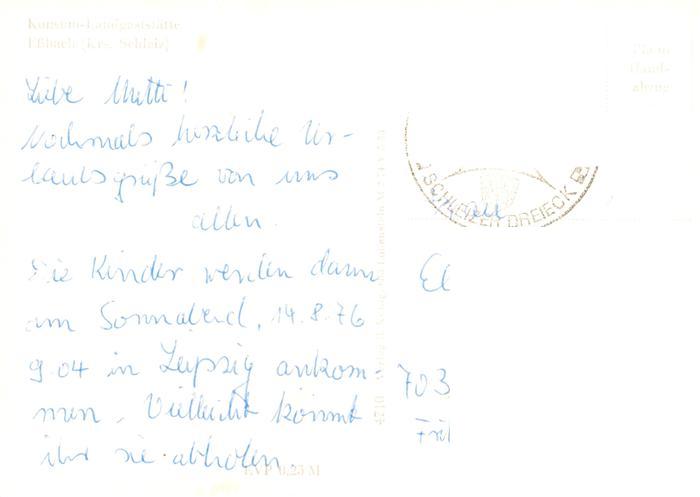 Konsum-Landgaststätte
Eßbach (Krs. Schleiz)
Liebe Mutti!
Nochmals herzliche Ur-
laubsgrüße von uns
allen.
Die Kinder werden dann
am Sonnabend, 14.8.76
9.04 in Leipzig ankom-
men. Vielleicht könnt
ihr sie abholen.
EVP 0,25 M
SCHLEIZER DREIECK
703